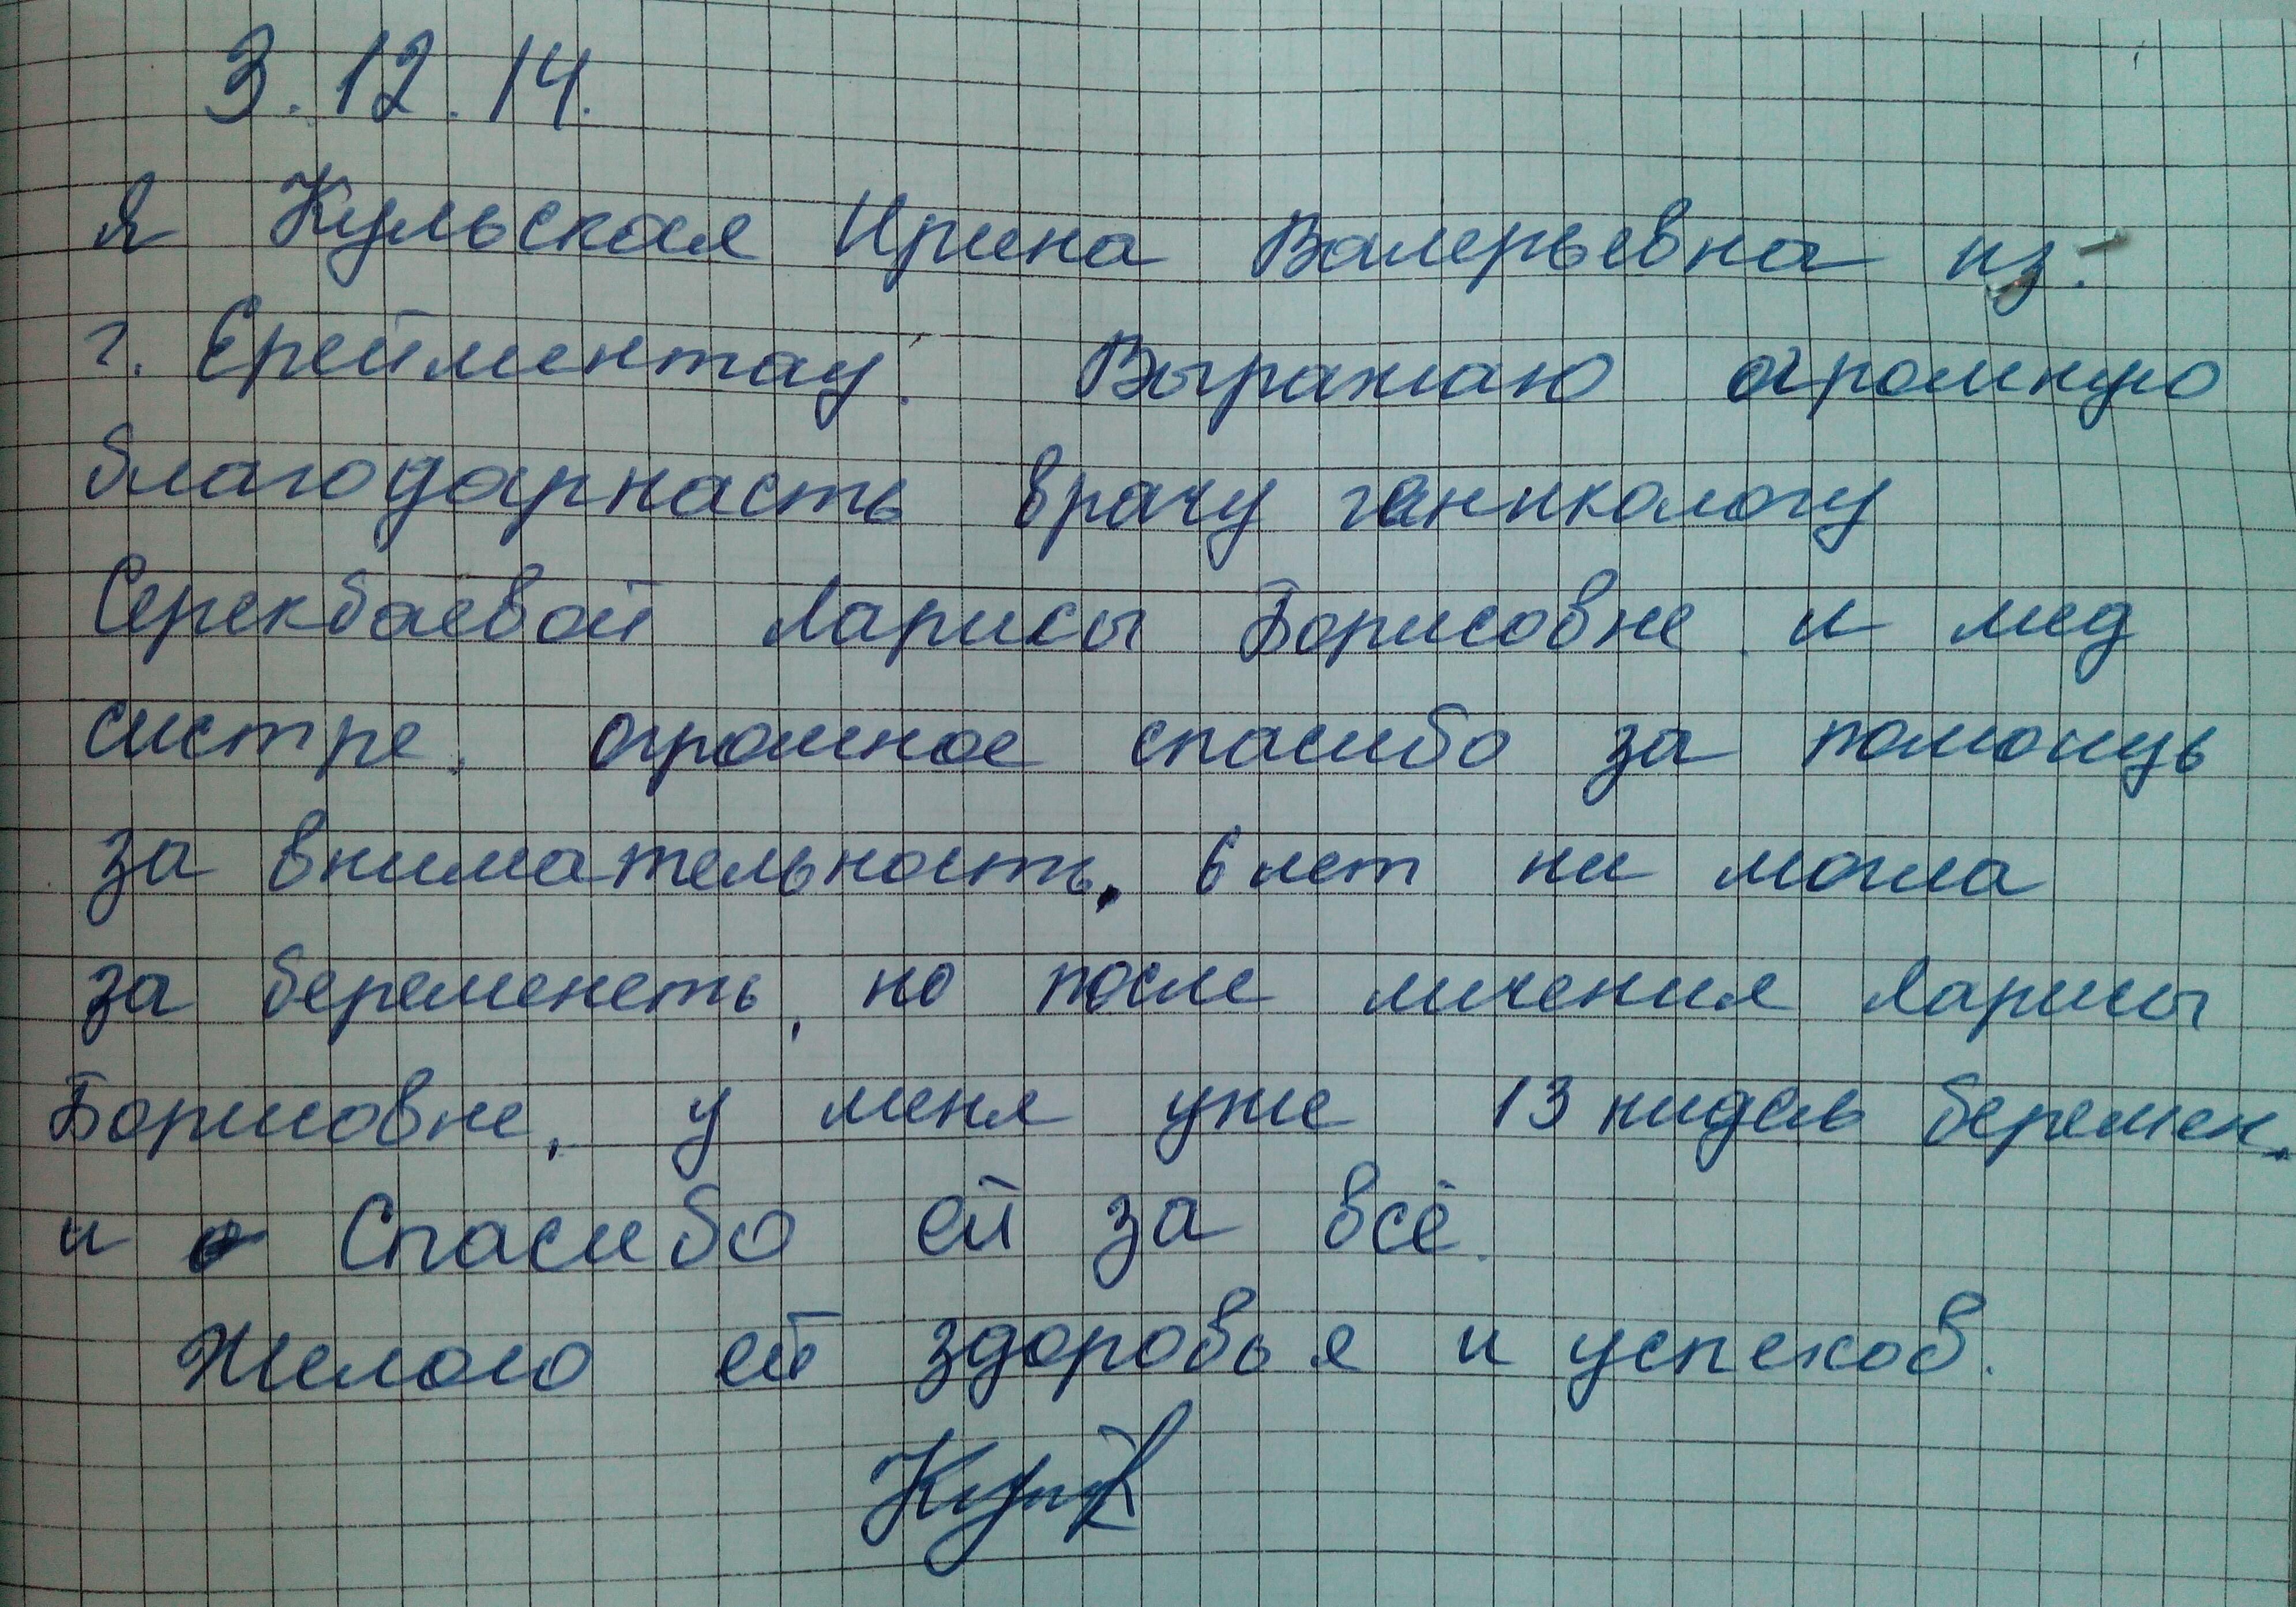 3.12.14.
Я Кульская Ирина Валерьевна из.
г. Ерейментау. Выражаю огромную
благодарнасть врачу ганикологу
Серекбаевой Ларисы Борисовне и мед
систре. огромное спасибо за помощь
за внимательность. 6 лет ни могла
за беременеть, но после личения Ларисы
Борисовне, у меня уже 13 нидель беремен.
и Спасибо ей за всё.
Желаю ей здоровья и успехов.